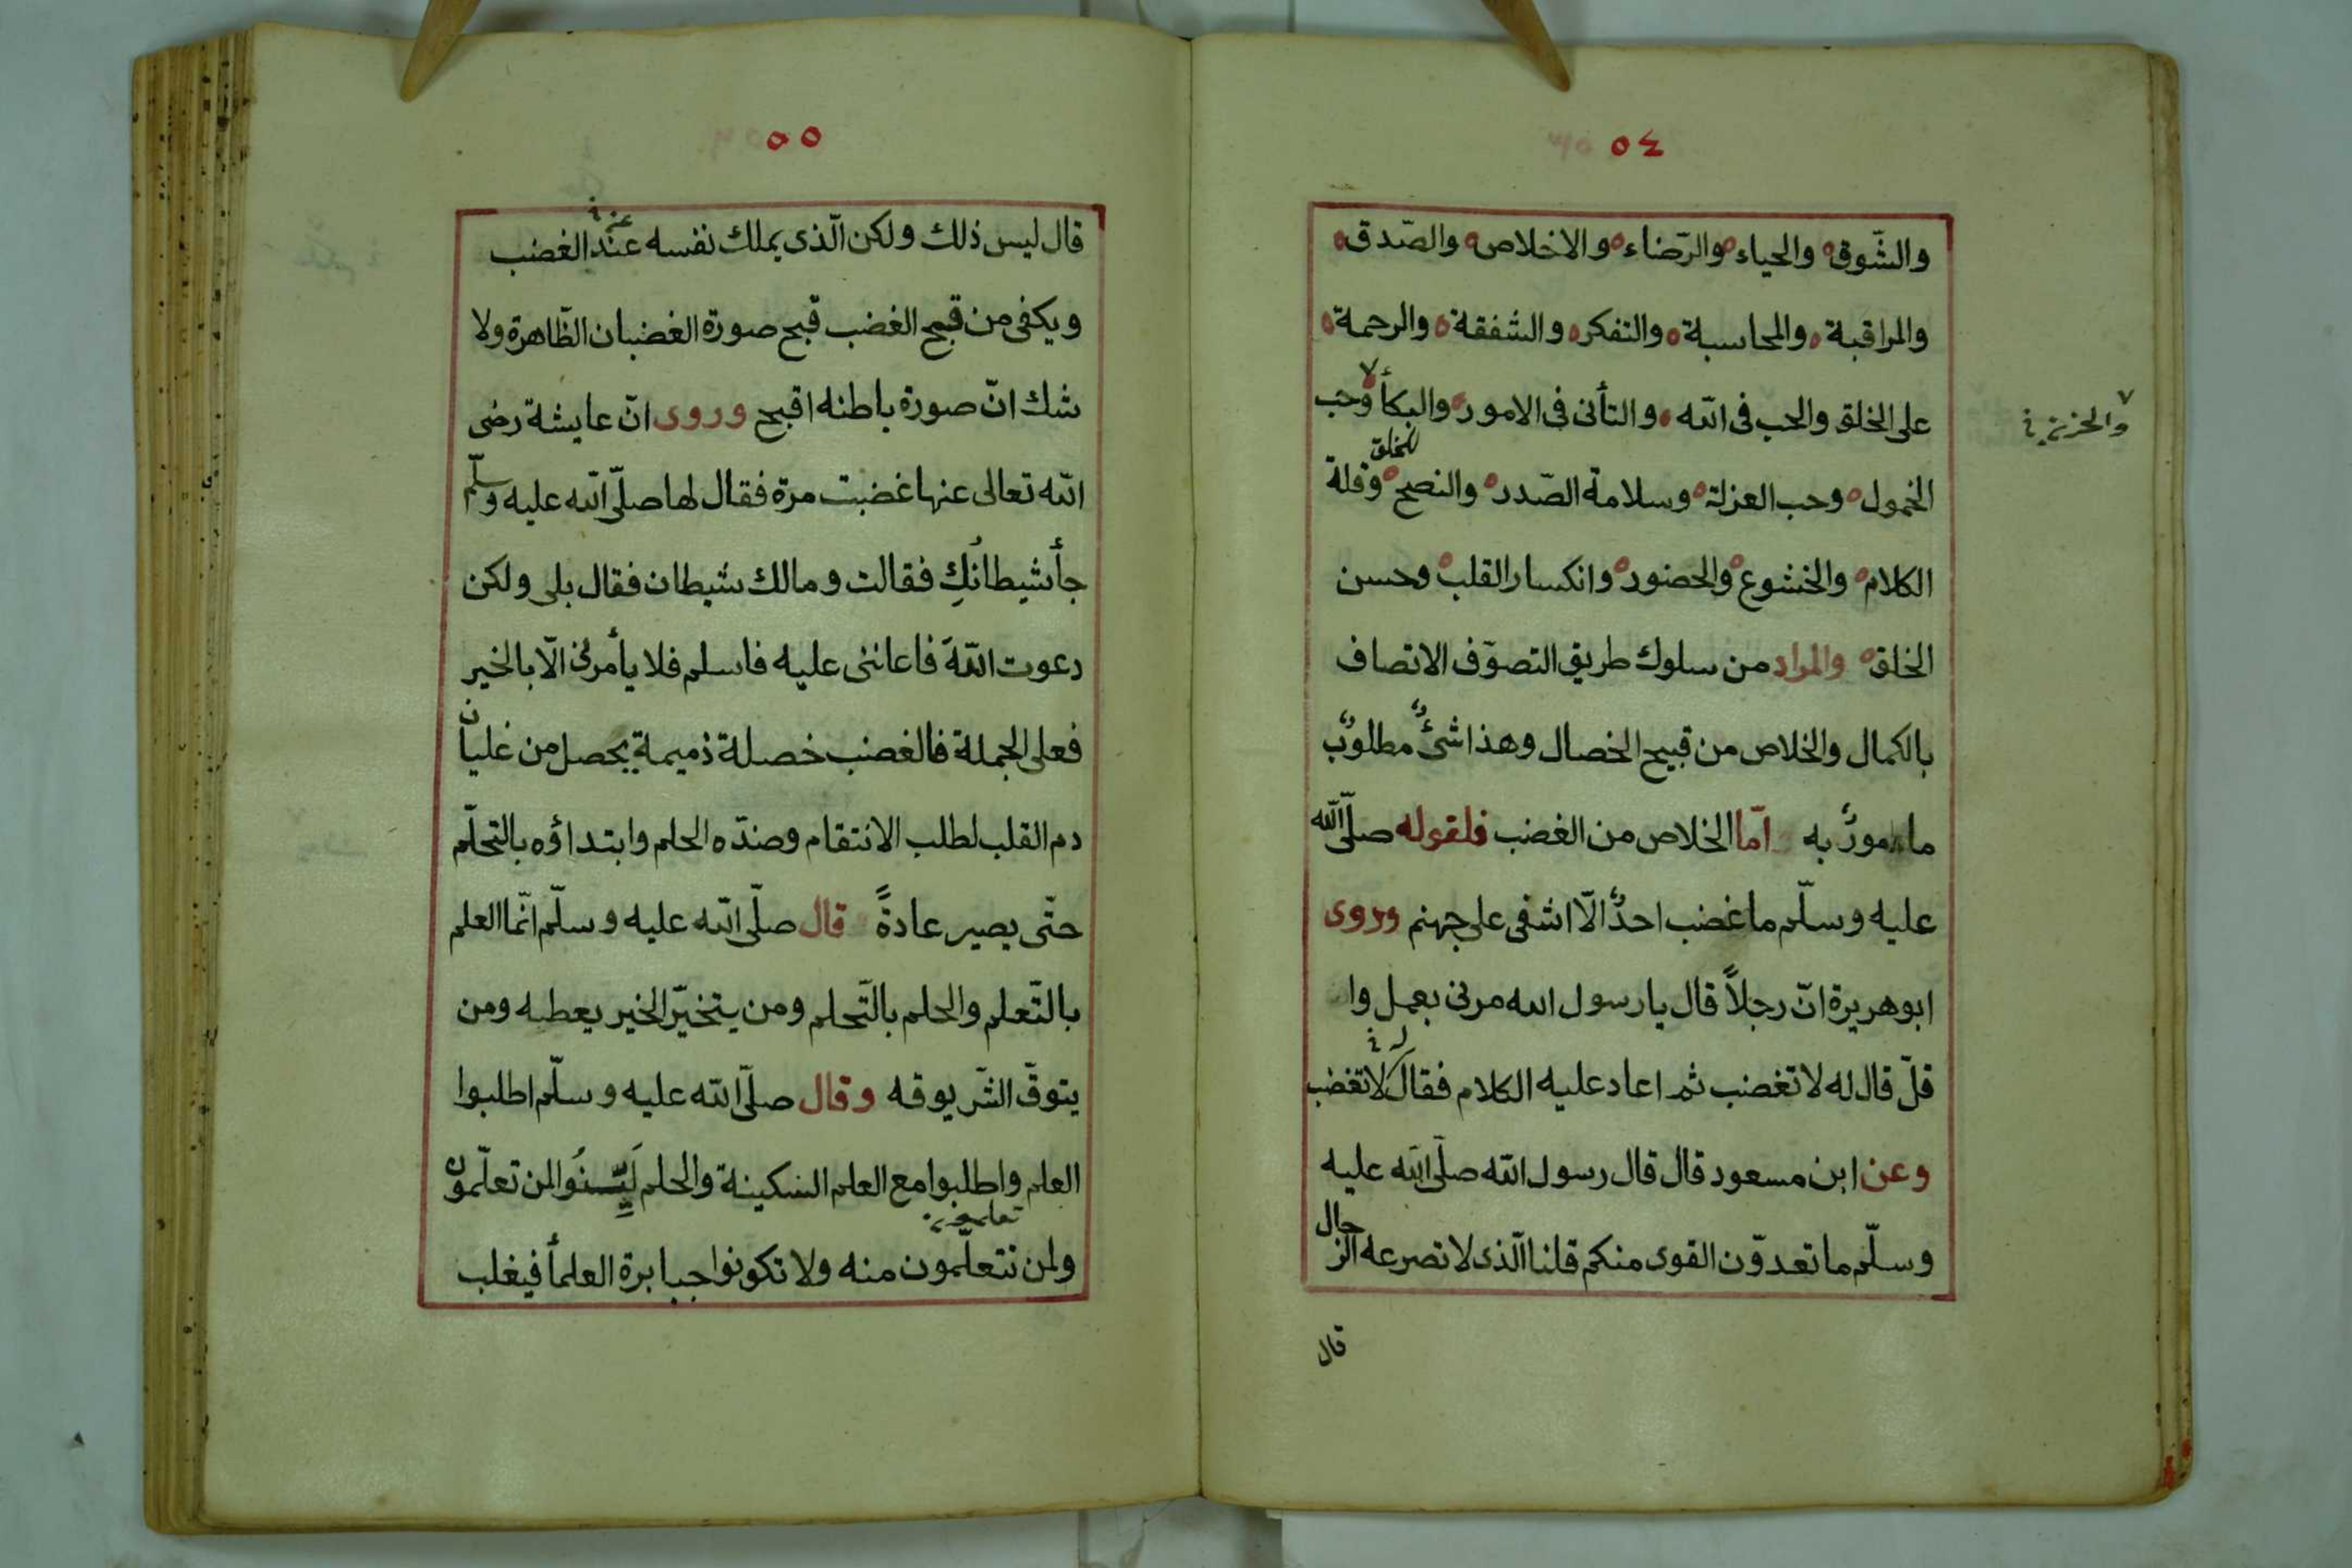 ٥٤
والشّوق والحياء والرّضاء والاخلاص والصّدق
والمراقبة والمحاسبة والتفكر والشفقة والرحمة
على الخلق والحب فى الله والتأنى فى الامور والبكأ وحب
والحزن
الخمول وحب العزلة وسلامة الصّدر والنصح للخلق وقلة
الكلام والخشوع والحضور وانكسار القلب وحسن
الخلق والمراد من سلوك طريق التصوّف الاتصاف
بالكمال والخلاص من قبيح الخصال وهذا شئٌ مطلوبٌ
مامورٌ به امّا الخلاص من الغضب فلقوله صلّى الله
عليه وسلّم ما غضب احدٌ الّا اشفى على جهنم وروى
ابوهريرة انّ رجلاً قال يا رسول الله مرنى بعمل وا
قلّ قال له لا تغضب ثم اعاد عليه الكلام فقال لا تغضب
وعن ابن مسعود قال قال رسول الله صلّى الله عليه
وسلّم ما تعدّون القوى منكم قلنا الّذى لا تصرعه الرّجال
قال
٥٥
قال ليس ذلك ولكن الّذى يملك نفسه عند الغضب
ويكفى من قبح الغضب قبح صورة الغضبان الظّاهرة ولا
شك انّ صورة باطنه اقبح وروى انّ عايشة رضى
الله تعالى عنها غضبت مرة فقال لها صلّى الله عليه وسلّم
جأ شيطانُكِ فقالت ومالك شيطان فقال بلى ولكن
دعوت اللّهَ فاعاننى عليه فاسلم فلا يأمرنى الّا بالخير
فعلى الجملة فالغضب خصلة ذميمة يحصل من غليان
دم القلب لطلب الانتقام وضدّه الحلم وابتداؤه بالتحلّم
حتّى يصير عادةً قال صلّى الله عليه وسلّم انّما العلم
بالتّعلم والحلم بالتّحلم ومن يتخيّر الخير يعطه ومن
يتوقّ الشّر يوقه وقال صلّى الله عليه وسلّم اطلبوا
العلم واطلبوا مع العلم السكينة والحلم لَيِّنُوا لمن تعلّمون
ولمن تتعلّمون منه ولا تكونوا جبابرة العلمأ فيغلب